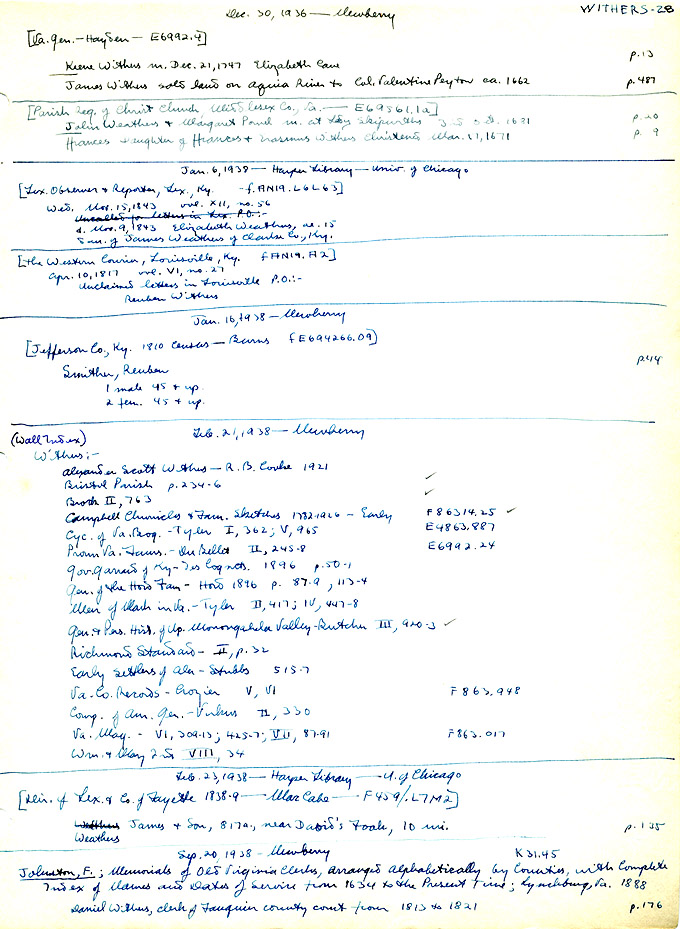 Dec. 30, 1936 — Newberry
WITHERS-28
[Va. Gen. — Hayden — E6992.4]
Keene Withers m. Dec. 21, 1747 Elizabeth Cave p. 13
James Withers sold land on Aquia River to Col. Valentine Peyton ca. 1662 p. 487
[Parish Reg. of Christ Church, Middlesex Co., Va. — E69561.1a]
John Weathers & Margaret Pound m. at 1681 p. 20
Frances daughter of Frances & Erasmus Withers christened Mar. VI, 1671 p. 9
Jan. 6, 1938 — Harper Library — Univ. of Chicago
[Lex. Observer & Reporter, Lex., Ky. — f.AN19.L6L63]
Wed. Nov. 15, 1843 vol. XII, no. 56
Uncalled for letters in Lex. P.O.:-
d. Nov. 9, 1843 Elizabeth Weathers, ae. 15
dau. of James Weathers of Clarke Co., Ky.
[The Western Courier, Louisville, Ky. fAN19.A2]
Apr. 10, 1817 vol. VI, no. 27
Unclaimed letters in Louisville P.O.:-
Reuben Withers
Jan. 16, 1938 — Newberry
[Jefferson Co., Ky. 1810 Census — Burns fE694266.09]
Smither, Reuben p. 44
1 male 45 & up.
2 fem. 45 & up.
Feb. 21, 1938 — Newberry
(Wall Index)
Withers:-
Alexander Scott Withers — R. B. Cooke 1921
Bristol Parish p. 234-6
Brock II, 763
Campbell Chronicles & Fam. Sketches 1782-1926 — Early F86314.25
Cyc. of Va. Biog. - Tyler I, 362; V, 965 E4863.887
Prom. Va. Fams. - Du Bellet II, 245-8 E6992.24
Gov. Garrard of Ky - Des Cognets 1896 p. 50-1
Gen. of the Hord Fam - Hord 1896 p. 87-9, 113-4
Men of Mark in Va. - Tyler II, 417; IV, 447-8
Gen. & Pers. Hist. of Up. Monongahela Valley - Butcher III, 920-3
Richmond Standard - II, p. 32
Early Settlers of Ala - Stubbs 515-7
Va. Co. Records - Crozier V, VI F863.948
Comp. of Am. Gen. - Virkus II, 330
Va. Mag. - VI, 309-13; 425-7; VII, 87-91 F863.017
Wm. & Mary 2 S VIII, 34
Feb. 23, 1938 — Harper Library — U. of Chicago
[Dir. of Lex. & Co. of Fayette 1838-9 — MacCabe — F459/.L7M2]
Withers James & Son, 817a., near David's Fork, 10 mi. p. 135
Weathers
Sep. 20, 1938 — Newberry K31.45
Johnston, F.; Memorials of Old Virginia Clerks, arranged alphabetically by Counties, with Complete
Index of Names and Dates of Service from 1634 to the Present Time; Lynchburg, Va. 1888
Daniel Withers, clerk of Fauquier county court from 1813 to 1821 p. 176